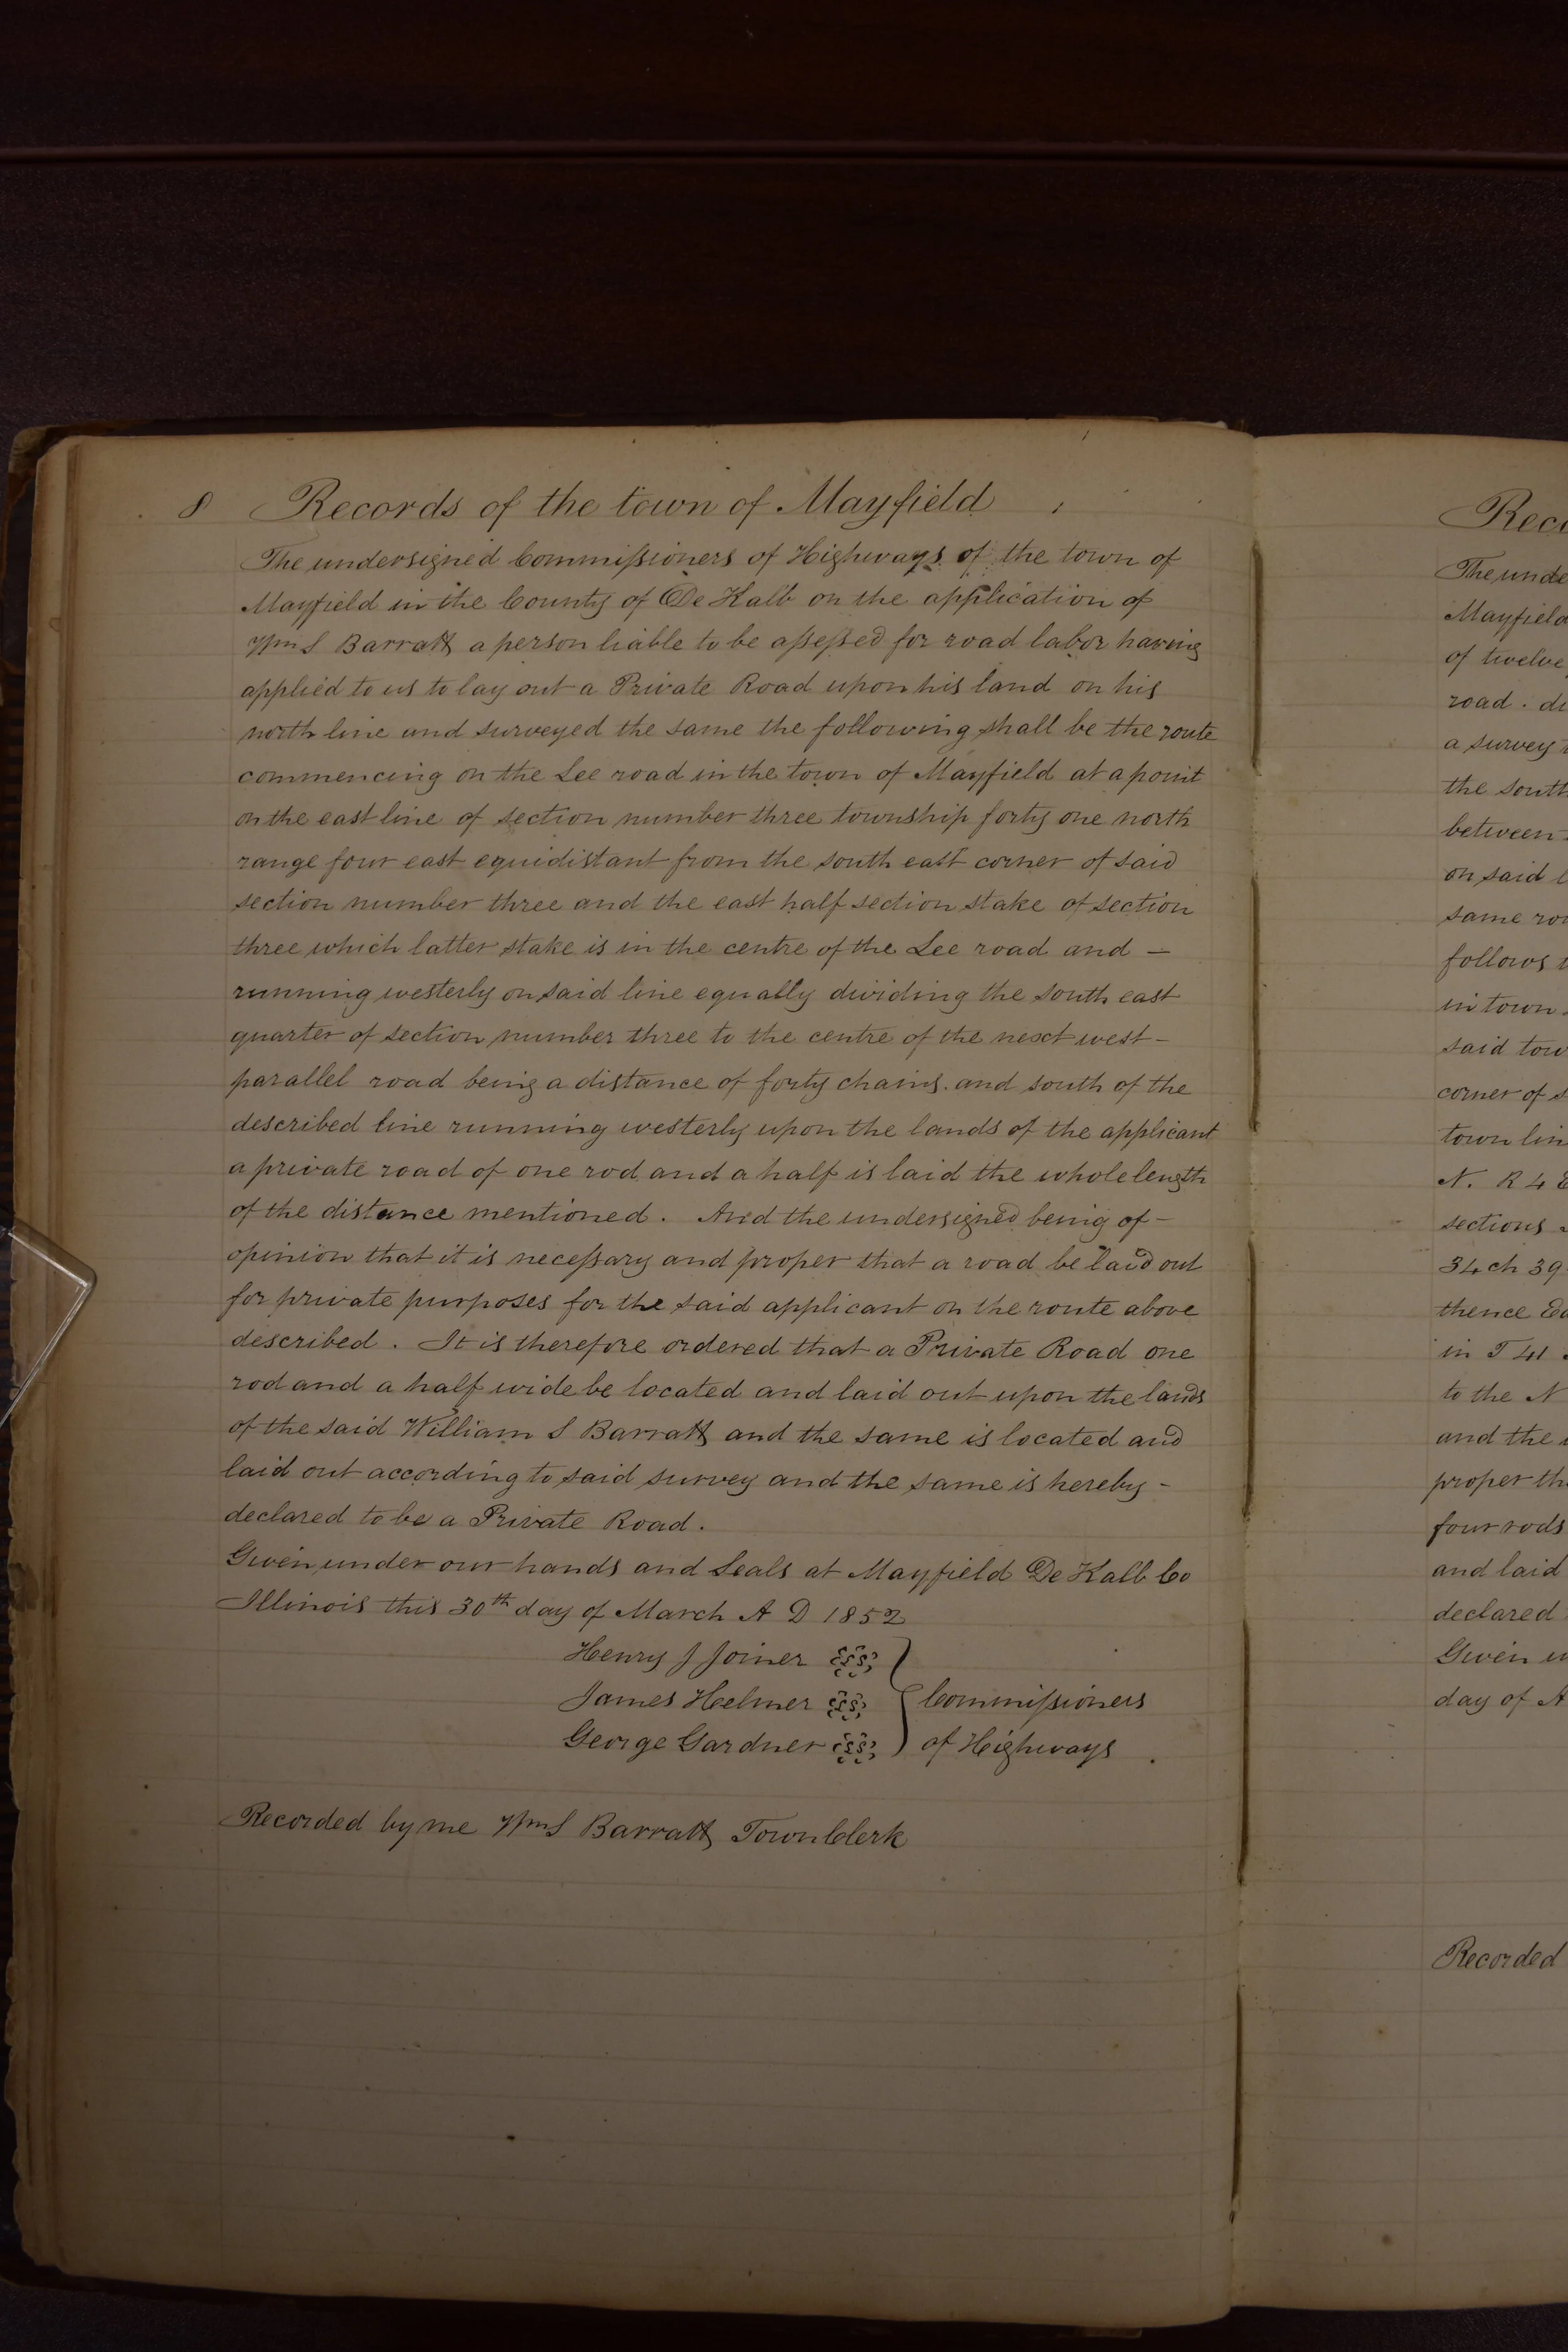 8 Records of the town of Mayfield
The undersigned Commissioners of Highways of the town of
Mayfield in the County of De Kalb on the application of
Wm S Barratt a person liable to be assessed for road labor having
applied to us to lay out a Private Road upon his land on his
north line and surveyed the same the following shall be the route
commencing on the Lee road in the town of Mayfield at a point
on the east line of section number three township forty one north
range four east equidistant from the south east corner of said
section number three and the east half section stake of section
three which latter stake is in the centre of the Lee road and —
running westerly on said line equally dividing the south east
quarter of section number three to the centre of the next west –
parallel road being a distance of forty chains. and south of the
described line running westerly upon the lands of the applicant
a private road of one rod and a half is laid the whole length
of the distance mentioned. And the undersigned being of –
opinion that it is necessary and proper that a road be laid out
for private purposes for the said applicant on the route above
described. It is therefore ordered that a Private Road one
rod and a half wide be located and laid out upon the lands
of the said William S Barratt and the same is located and
laid out according to said survey and the same is hereby –
declared to be a Private Road.
Given under our hands and Seals at Mayfield De Kalb Co
Illinois this 30th day of March A D 1852
Henry J Joiner
James Helmer Commissioners
George Gardner of Highways
Recorded by me Wm S Barratt Town Clerk
Reco
The unde
Mayfield
of twelve
road. di
a survey
the south
between
on said l
same rou
follows
in town
said tow
corner of s
town lin
N. R 4 E
sections
34 ch 39
thence Ea
in T 41
to the N
and the
proper th
four rods
and laid
declared
Given u
day of A
Recorded